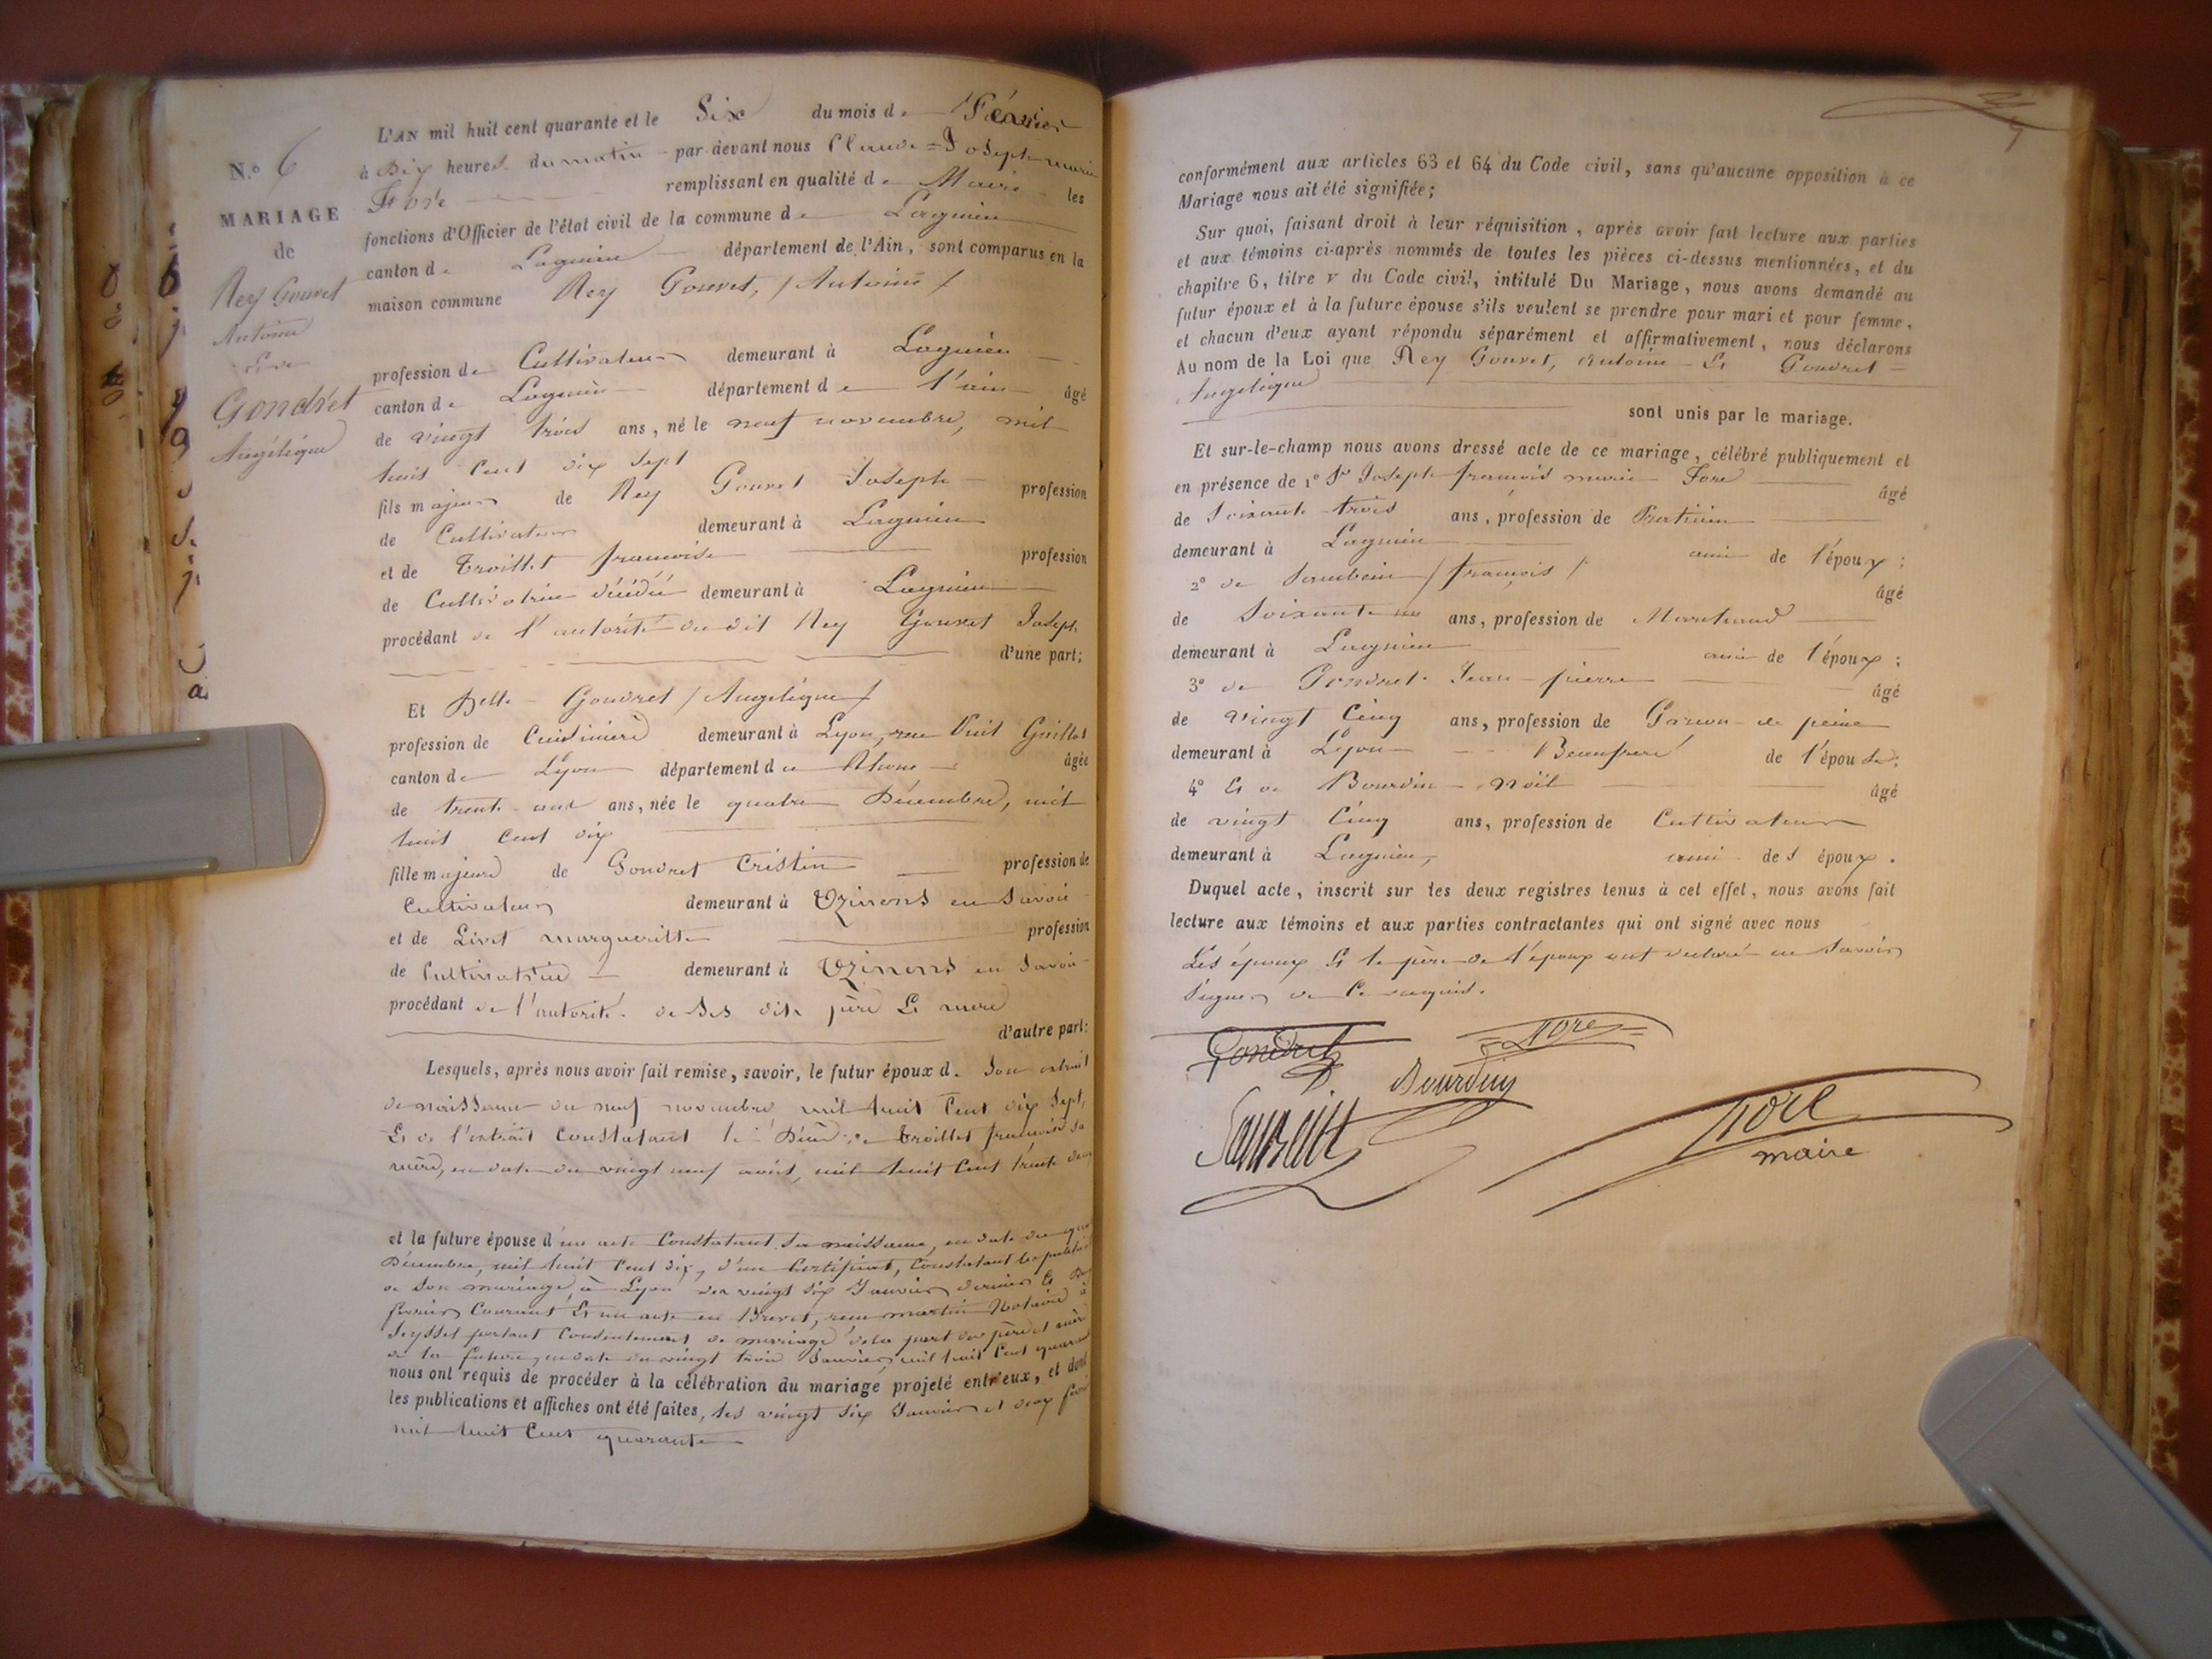 N.° 6
MARIAGE
de
Rey Gouvet
Antoine
Gondret
Angélique
L'AN mil huit cent quarante et le Six du mois de Février
à Dix heures du matin par devant nous Claude = Joseph marie
Foré remplissant en qualité de Maire les
fonctions d'Officier de l'état civil de la commune de Lagnieu
canton de Lagnieu département de l'Ain, sont comparus en la
maison commune Rey Gouvet, / Antoine /
profession de Cultivateur demeurant à Lagnieu
canton de Lagnieu département de l'ain âgé
de vingt trois ans, né le neuf novembre, mil
huit Cent dix Sept
fils majeur de Rey Gouvet Joseph profession
de Cultivateur demeurant à Lagnieu
et de Troillet francoise profession
de Cultivatrice décédée demeurant à Lagnieu
procédant de l'autorité du dit Rey Gouvet Joseph
d'une part;
Et Delle Gondret / Angelique /
profession de Cuisinière demeurant à Lyon, rue Puit Gaillot
canton de Lyon département du Rhone âgée
de trente ans, née le quatre Décembre, mil
huit Cent dix
fille majeure de Gondret Cristin profession de
Cultivateur demeurant à en Savoie
et de Livet margueritte profession
de Cultivatrice demeurant à en Savoie
procédant de l'autorité de Ses dits père Et mere
d'autre part:
Lesquels, après nous avoir fait remise, savoir, le futur époux d. Son extrait
de naissance du neuf novembre mil huit Cent dix Sept,
Et de l'extrait Constatant le Décès de Troillet francoise Sa
mère, en date du vingt neuf août, mil huit Cent trente deux
et la future épouse d'un acte Constatant Sa naissance, en date du
Décembre, mil huit Cent dix, d'un Certificat, Constatant les
de Son mariage, à Lyon des vingt Six Janvier dernier Et
fevrier Courant Et un acte en Brevet, recu martin Notaire à
Seyssel portant Consentement de mariage de la part des père et mère
de la future, en date du vingt trois Janvier, mil huit Cent quarante
nous ont requis de procéder à la célébration du mariage projeté entr'eux, et dont
les publications et affiches ont été faites, les vingt Six Janvier et deux
mil huit Cent quarante
conformément aux articles 63 et 64 du Code civil, sans qu'aucune opposition à ce
Mariage nous ait été signifiée;
Sur quoi, faisant droit à leur réquisition, après avoir fait lecture aux parties
et aux témoins ci-après nommés de toutes les pièces ci-dessus mentionnées, et du
chapitre 6, titre V du Code civil, intitulé Du Mariage, nous avons demandé au
futur époux et à la future épouse s'ils veulent se prendre pour mari et pour femme,
et chacun d'eux ayant répondu séparément et affirmativement, nous déclarons
Au nom de la Loi que Rey Gouvet, Antoine Et Gondret =
Angelique
sont unis par le mariage.
Et sur-le-champ nous avons dressé acte de ce mariage, célébré publiquement et
en présence de 1° Sr Joseph francois marie Foré âgé
de Soixante trois ans, profession de Praticien
demeurant à Lagnieu ami de l'époux;
2° de / françois / âgé
de Soixante ans, profession de Marchand
demeurant à Lagnieu ami de l'époux;
3° de Gondret Jean-pierre âgé
de vingt Cinq ans, profession de Garcon de peine
demeurant à Lyon Beaufrere de l'épouse;
4° Et de Bourdin Noël âgé
de vingt Cinq ans, profession de Cultivateur
demeurant à Lagnieu, ami des époux.
Duquel acte, inscrit sur les deux registres tenus à cet effet, nous avons fait
lecture aux témoins et aux parties contractantes qui ont signé avec nous
Les époux Et le père de l'époux ont déclaré ne Savoir
Signer de Ce requis.
Gondret Foré
Bourdin
Foré
maire